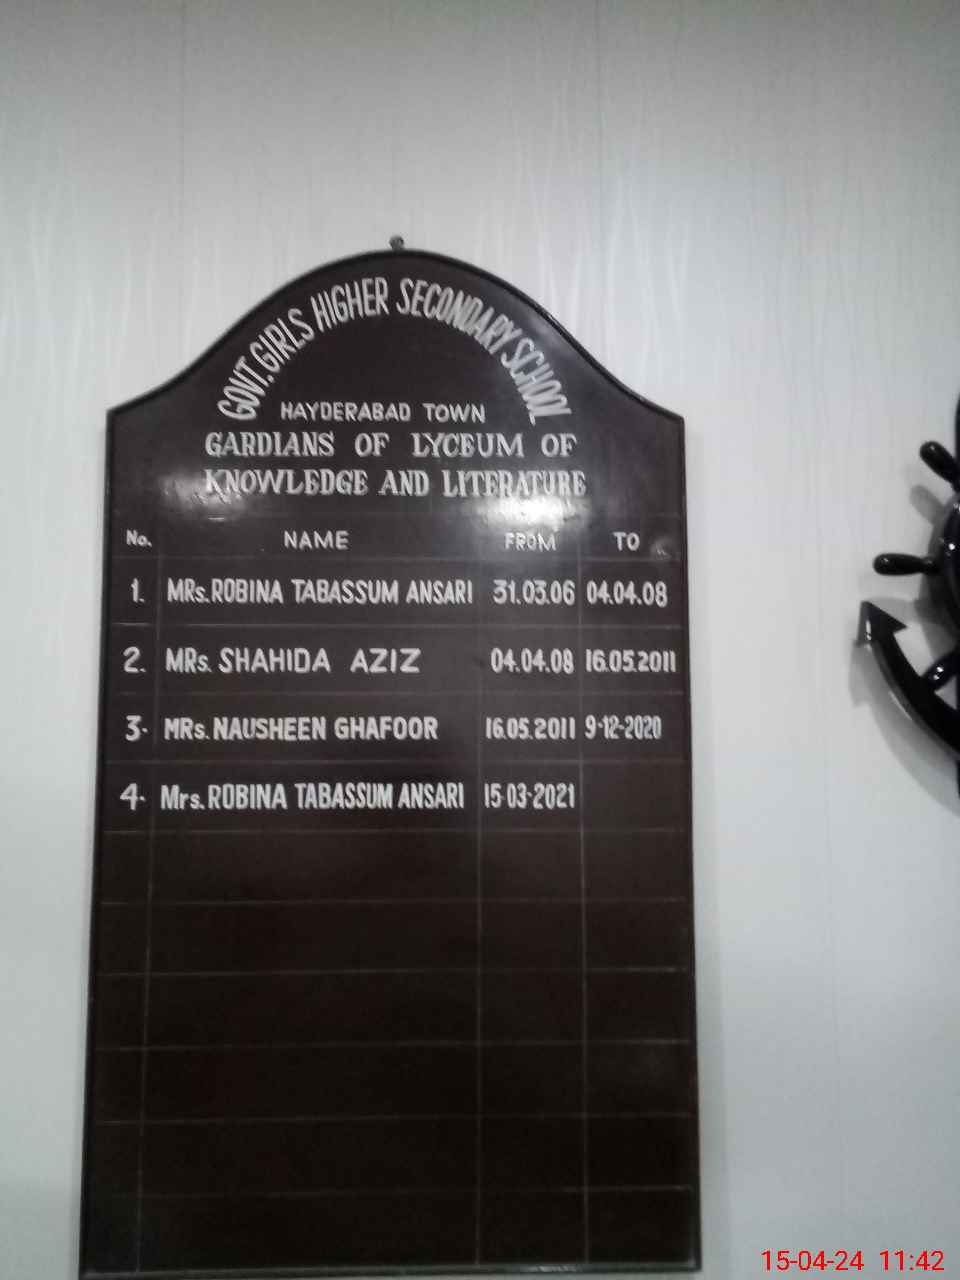 GOVT. GIRLS HIGHER SECONDARY SCHOOL
HAYDERABAD TOWN
GARDIANS OF LYCEUM OF
KNOWLEDGE AND LITERATURE
No. NAME FROM TO
1. MRs. ROBINA TABASSUM ANSARI 31.03.06 04.04.08
2. MRs. SHAHIDA AZIZ 04.04.08 16.05.2011
3. MRs. NAUSHEEN GHAFOOR 16.05.2011 9-12-2020
4. Mrs. ROBINA TABASSUM ANSARI 15-03-2021
15-04-24 11:42